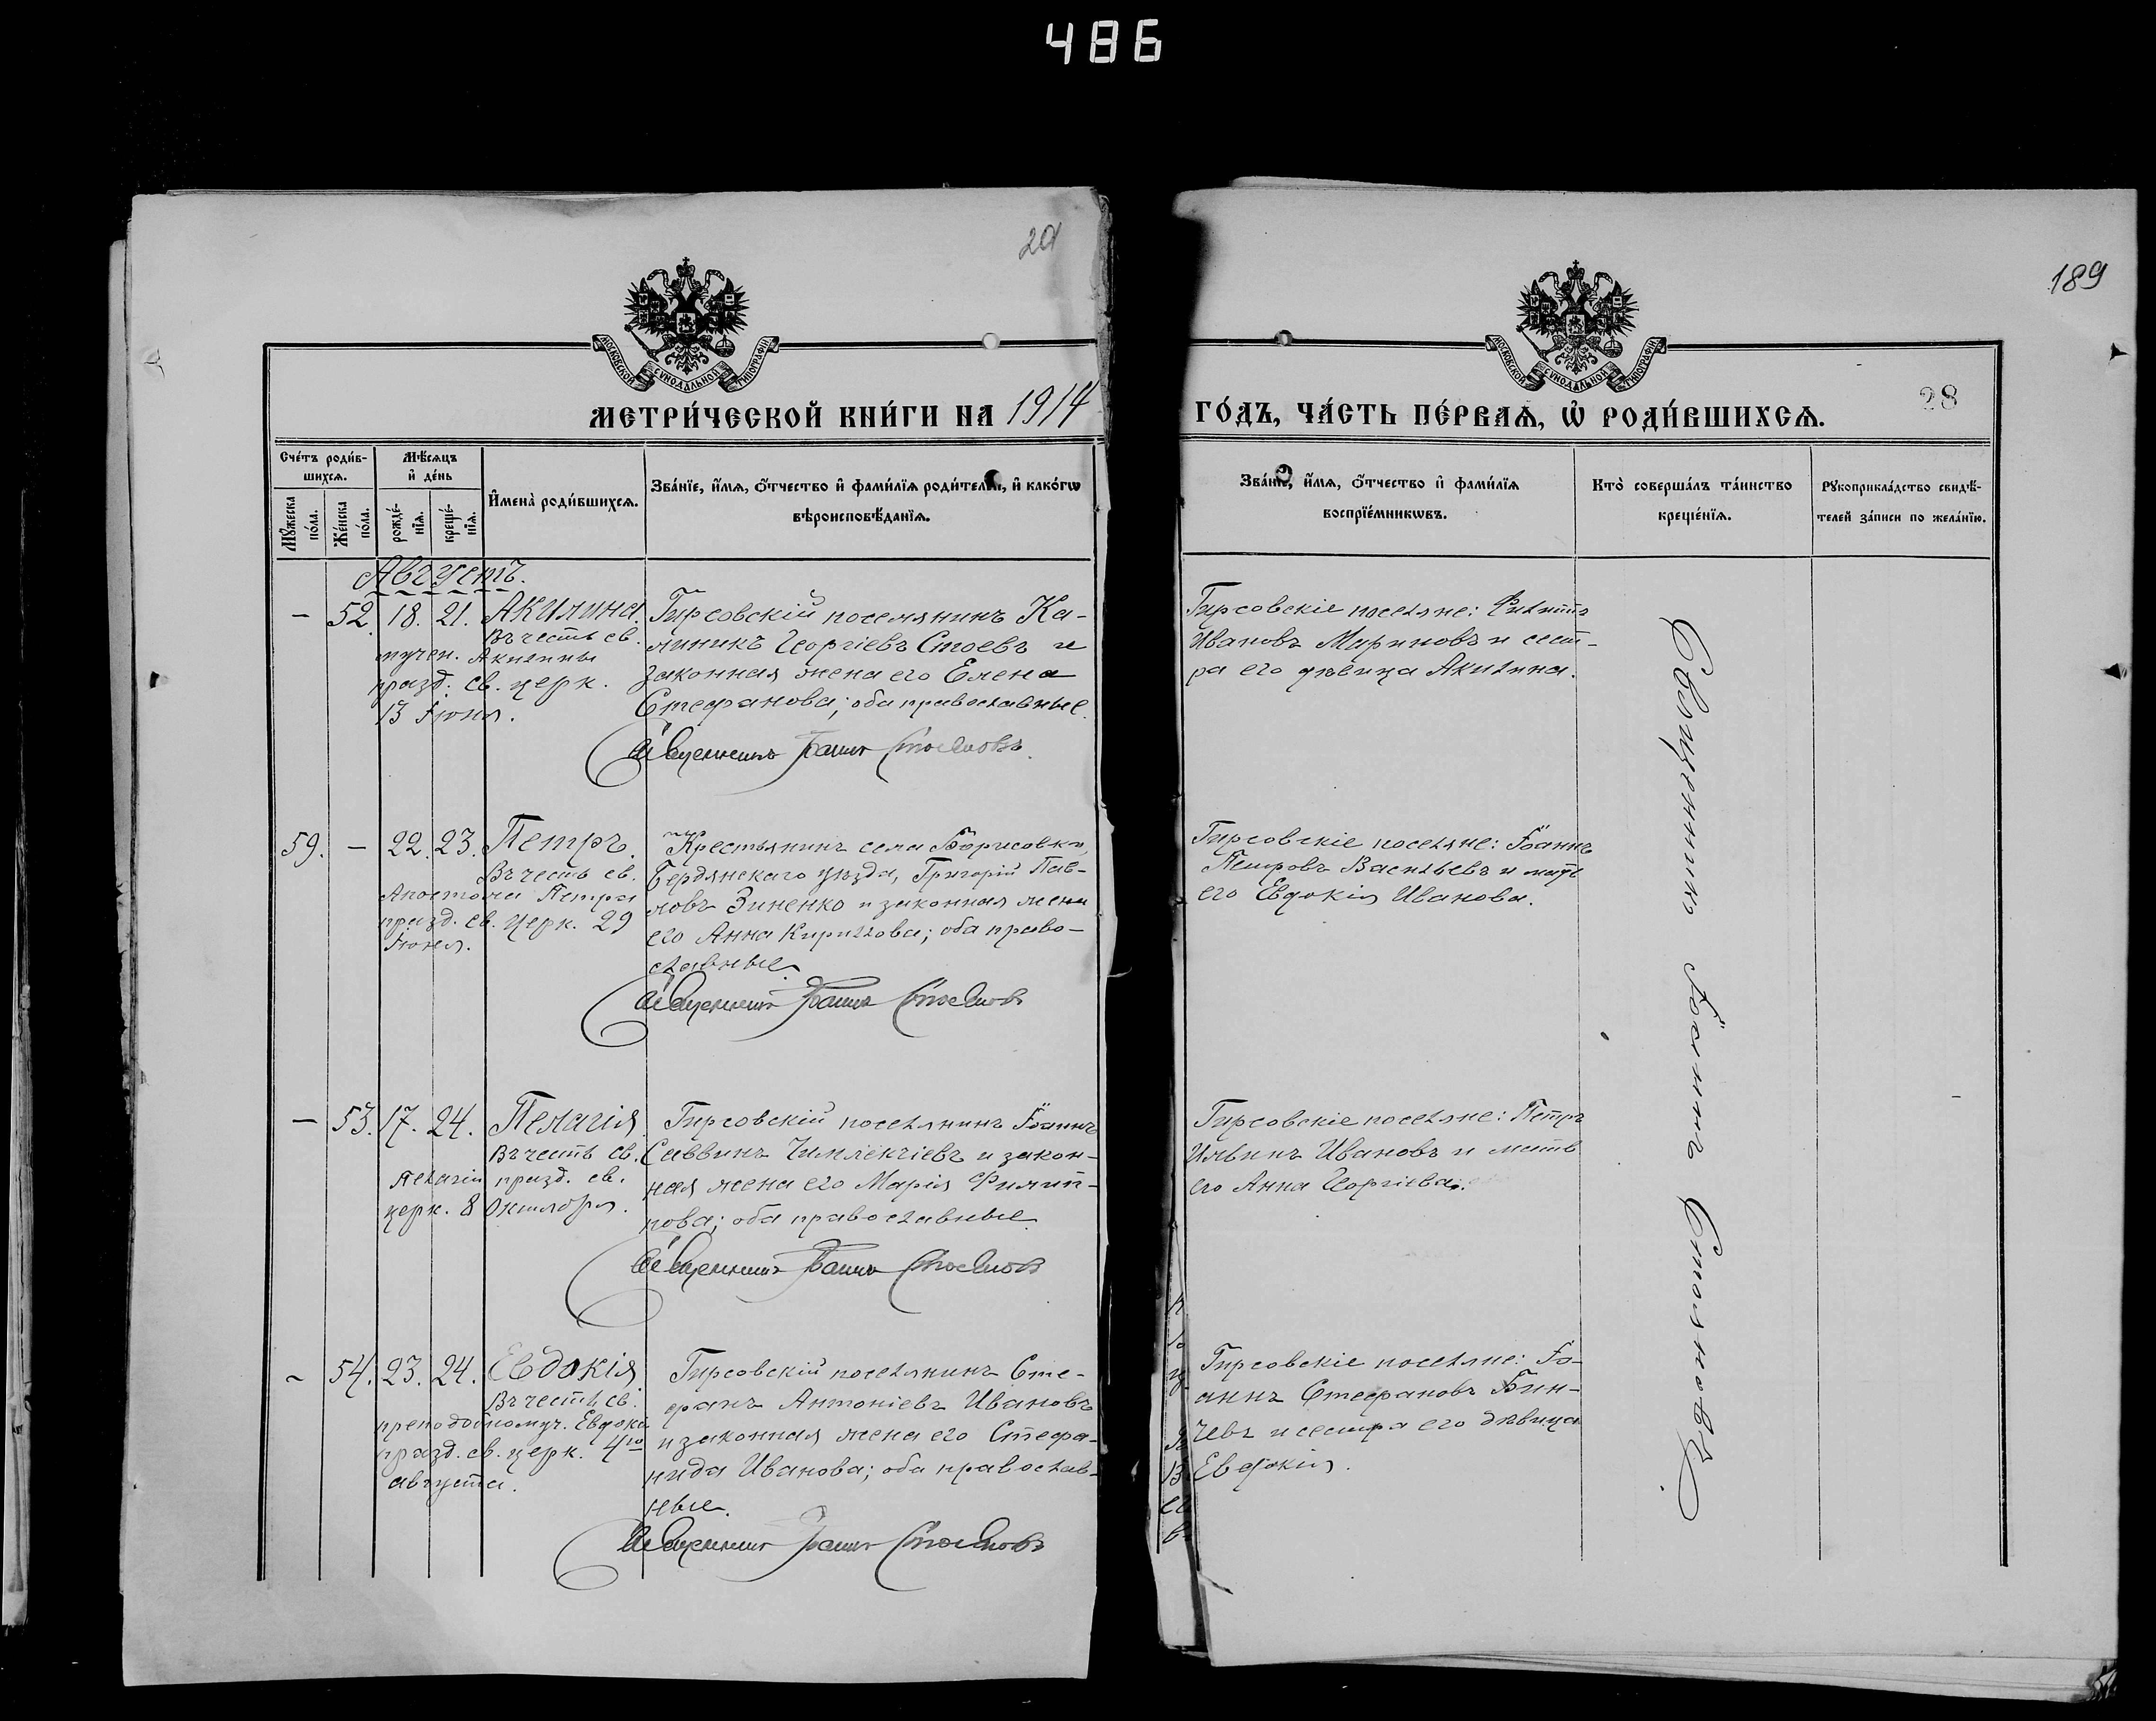 486
20
189
МОСКОВСКОЙ СУНОДАЛЬНОЙ ТИПОГРАФІИ
МОСКОВСКОЙ СУНОДАЛЬНОЙ ТИПОГРАФІИ
28
МЕТРИ́ЧЕСКОЙ КНИ́ГИ НА 1914
ГО́ДЪ, ЧА́СТЬ ПЕ́РВАѦ, Ѡ РОДИ́ВШИХСѦ.
Сче́тъ роди́в-
шихсѧ.
Мꙋ́жеска по́ла.
Же́нска по́ла.
Мѣ́сѧцъ
и҆ де́нь
рожде́-
нїѧ.
креще́-
нїѧ.
И҆мена̀ роди́вшихсѧ.
Зва́нїе, и҆́мѧ, ѻ҆́тчество и҆ фами́лїѧ роди́телей, и҆ како́гѡ
вѣроисповѣ́данїѧ.
Зва́нїе, и҆́мѧ, ѻ҆́тчество и҆ фами́лїѧ
воспрїе́мникѡвъ.
Кто̀ соверша́лъ та́инство
креще́нїѧ.
Рꙋкоприкла́дство свидѣ́-
телей за́писи по жела́нїю.
Августъ.
– 52. 18. 21. Акилина.
Въ честь св.
мучен. Акилины
празд. св. церк.
13 Іюня.
Гирсовскій поселянинъ Ка-
линикъ Георгіевъ Стоевъ и
законная жена его Елена
Стефанова; оба православные.
Священникъ Іоаннъ Стояновъ
Гирсовскіе поселяне: Филиппъ
Ивановъ Мариновъ и сест-
ра его дѣвица Акилина.
59. – 22. 23. Петръ.
Въ честь св.
Апостола Петра
празд. св. церк. 29
Іюня.
Крестьянинъ села Борисовки,
Бердянскаго уѣзда, Григорій Пав-
ловъ Зиненко и законная жена
его Анна Кириллова; оба право-
славные.
Священникъ Іоаннъ Стояновъ
Гирсовскіе поселяне: Іоаннъ
Петровъ Васильевъ и мать
его Евдокія Иванова.
– 53. 17. 24. Пелагія
Въ честь св.
Пелагіи празд. св.
церк. 8 Октября.
Гирсовскій поселянинъ Іоаннъ
Саввинъ Чимлекчіевъ и закон-
ная жена его Марія Филип-
пова; оба православные.
Священникъ Іоаннъ Стояновъ
Гирсовскіе поселяне: Петръ
Ильинъ Ивановъ и мать
его Анна Георгіева.
– 54. 23. 24. Евдокія
Въ честь св.
преподобномуч. Евдокіи
празд. св. церк. 4го
августа.
Гирсовскій поселянинъ Сте-
фанъ Антоніевъ Ивановъ
и законная жена его Стефа-
нида Иванова; оба православ-
ные.
Священникъ Іоаннъ Стояновъ
Гирсовскіе поселяне: Іо-
аннъ Стефановъ Бин-
чевъ и сестра его дѣвица
Евдокія.
Священникъ Іоаннъ Стояновъ